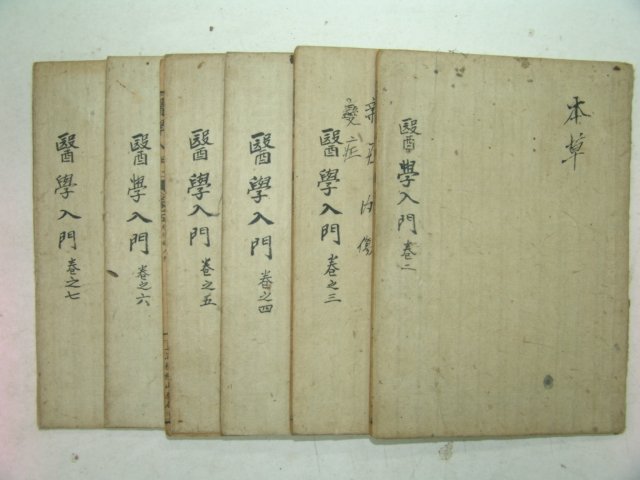 本草
醫學入門 卷二
內傷
變症
醫學入門 卷之三
醫學入門 卷之四
醫學入門 卷之五
醫學入門 卷之六
醫學入門 卷之七